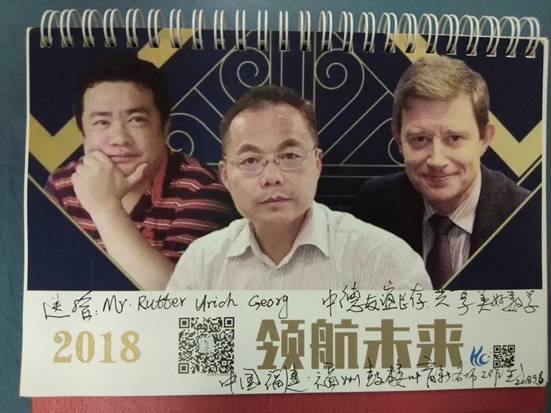 送给: Mr. Rutter Urich Georg 中德友谊长存.共享美好数学
2018 领航未来 HC
中国福建·福州鼓楼